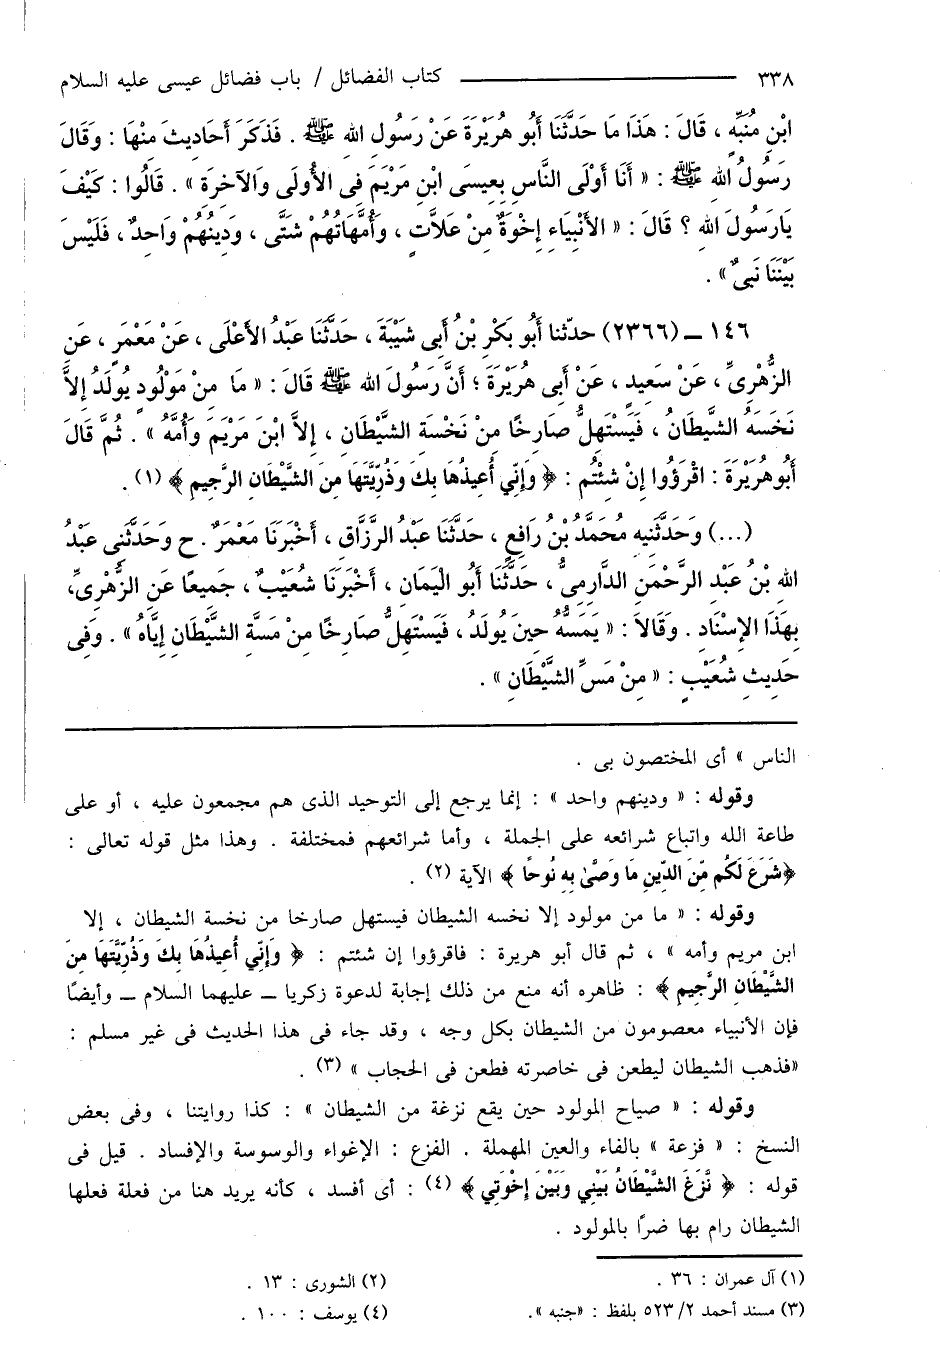 ٣٣٨ ـــــــــــــــــــ كتاب الفضائل / باب فضائل عيسى عليه السلام
ابْنِ مُنَبِّهٍ ، قَالَ : هَذَا مَا حَدَّثَنَا أَبُو هُرَيْرَةَ عَنْ رَسُولِ الله ﷺ . فَذَكَرَ أَحَادِيثَ مِنْهَا : وَقَالَ
رَسُولُ الله ﷺ : « أَنَا أَوْلَى النَّاسِ بِعِيسَى ابْنِ مَرْيَمَ فِى الأُولَى وَالآخِرَةِ » . قَالُوا : كَيْفَ
يَارَسُولَ اللهِ ؟ قَالَ : « الأَنْبِيَاءِ إِخْوَةٌ مِنْ عَلاَّتٍ ، وَأُمَّهَاتُهُمْ شَتَّى ، وَدِينُهُمْ وَاحِدٌ ، فَلَيْسَ
بَيْنَنَا نَبِىٌّ » .
١٤٦ ــ (٢٣٦٦) حدّثنا أَبُو بَكْرِ بْنُ أَبِى شَيْبَةَ ، حَدَّثَنَا عَبْدُ الأَعْلَى ، عَنْ مَعْمَرٍ ، عَنِ
الزُّهْرِىِّ ، عَنْ سَعِيدٍ ، عَنْ أَبِى هُرَيْرَةَ ؛ أَنَّ رَسُولَ الله ﷺ قَالَ : « مَا مِنْ مَوْلُودٍ يُولَدُ إِلاَّ
نَخَسَهُ الشَّيطَانُ ، فَيَسْتَهِلُّ صَارِخًا مِنْ نَخْسَةِ الشَّيْطَانِ ، إِلاَّ ابْنَ مَرْيَمَ وَأُمَّهُ » . ثُمَّ قَالَ
أَبُوهُرَيْرَةَ : اقْرَؤُوا إِنْ شِئْتُم : ﴿ وَإِنِّي أُعِيذُهَا بِكَ وَذُرِّيَّتَهَا مِنَ الشَّيْطَانِ الرَّجِيمِ ﴾ (١) .
(...) وَحَدَّثَنِيهِ مُحَمَّدُ بْنُ رَافِعٍ ، حَدَّثَنَا عَبْدُ الرَّزَّاقِ ، أَخْبَرَنَا مَعْمَرٌ . ح وَحَدَّثَنِى عَبْدُ
اللهِ بْنُ عَبْدِ الرَّحْمَنِ الدَّارِمِىُّ ، حَدَّثَنَا أَبُو الْيَمَانِ ، أَخْبَرَنَا شُعَيْبٌ ، جَمِيعًا عَنِ الزُّهْرِىِّ،
بِهَذَا الإِسْنَادِ . وَقَالاَ : « يَمَسُّهُ حِينَ يُولَدُ ، فَيَسْتَهِلُّ صَارِخًا مِنْ مَسَّةِ الشَّيْطَانِ إِيَّاهُ » . وَفِى
حَدِيثِ شُعَيْبٍ : « مِنْ مَسِّ الشَّيْطَانِ » .
الناس » أى المختصون بى .
وقوله : « ودينهم واحد » : إنما يرجع إلى التوحيد الذى هم مجمعون عليه ، أو على
طاعة الله واتباع شرائعه على الجملة ، وأما شرائعهم فمختلفة . وهذا مثل قوله تعالى :
﴿شَرَعَ لَكُم مِّنَ الدِّينِ مَا وَصَّىٰ بِهِ نُوحًا ﴾ الآية (٢) .
وقوله : « ما من مولود إلا نخسه الشيطان فيستهل صارخا من نخسة الشيطان ، إلا
ابن مريم وأمه » ، ثم قال أبو هريرة : فاقرؤوا إن شئتم : ﴿ وَإِنِّي أُعِيذُهَا بِكَ وَذُرِّيَّتَهَا مِنَ
الشَّيْطَانِ الرَّجِيمِ ﴾ : ظاهره أنه منع من ذلك إجابة لدعوة زكريا ــ عليهما السلام ــ وأيضًا
فإن الأنبياء معصومون من الشيطان بكل وجه ، وقد جاء فى هذا الحديث فى غير مسلم :
«فذهب الشيطان ليطعن فى خاصرته فطعن فى الحجاب » (٣) .
وقوله : « صياح المولود حين يقع نزغة من الشيطان » : كذا روايتنا ، وفى بعض
النسخ : « فزعة » بالفاء والعين المهملة . الفزع : الإغواء والوسوسة والإفساد . قيل فى
قوله : ﴿ نَّزَغَ الشَّيْطَانُ بَيْنِي وَبَيْنَ إِخْوَتِي ﴾ (٤) : أى أفسد ، كأنه يريد هنا من فعلة فعلها
الشيطان رام بها ضرًا بالمولود .
(١) آل عمران : ٣٦ . (٢) الشورى : ١٣ .
(٣) مسند أحمد ٢/ ٥٢٣ بلفظ : «جنبه ». (٤) يوسف : ١٠٠ .